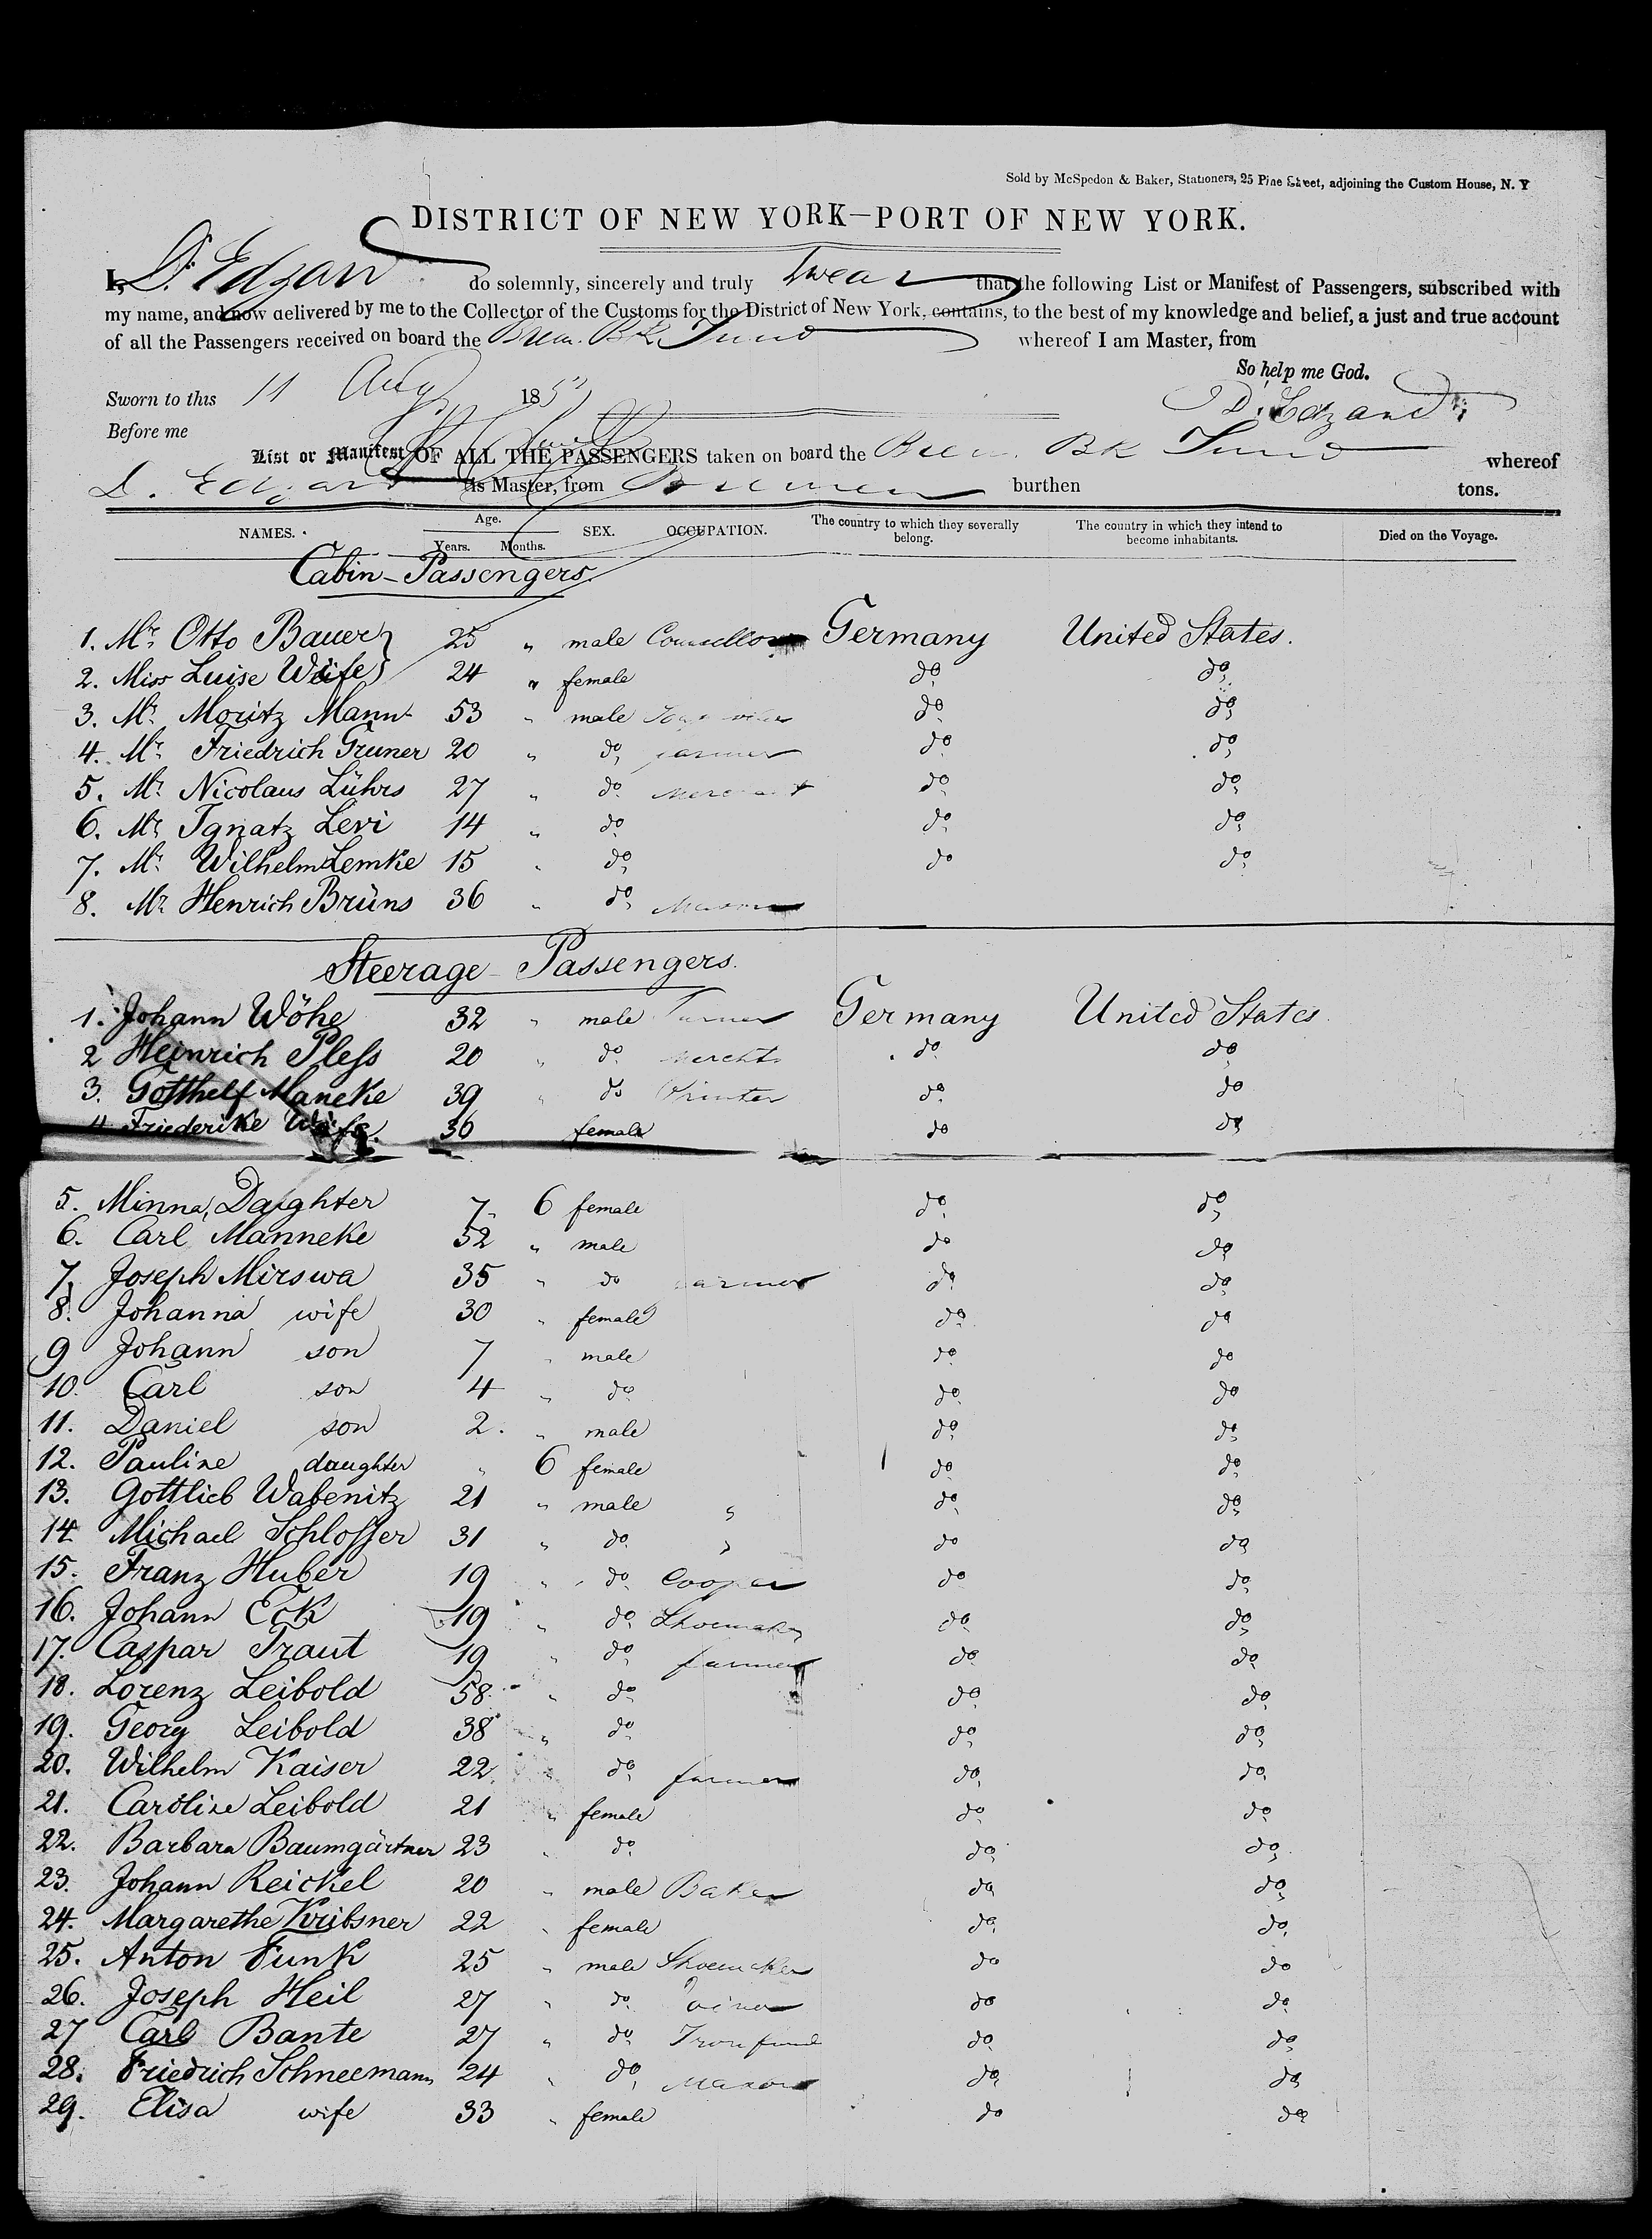 Sold by McSpedon & Baker, Stationers, 25 Pine Street, adjoining the Custom House, N. Y
DISTRICT OF NEW YORK—PORT OF NEW YORK.
I, D. Edzard do solemnly, sincerely and truly swear that the following List or Manifest of Passengers, subscribed with
my name, and now delivered by me to the Collector of the Customs for the District of New York, contains, to the best of my knowledge and belief, a just and true account
of all the Passengers received on board the Brem. Bk. Juno whereof I am Master, from
So help me God.
Sworn to this 11 Aug 185
D. Edzard
Before me
List or Manifest OF ALL THE PASSENGERS taken on board the Brem. Bk Juno whereof
D. Edzard is Master, from Bremen burthen tons.
NAMES. Age. Years. Months. SEX. OCCUPATION. The country to which they severally belong. The country in which they intend to become inhabitants. Died on the Voyage.
Cabin-Passengers.
1. Mr. Otto Bauer 25 " male Germany United States.
2. Miss Luise Wife 24 " female do do
3. Mr. Moritz Mann 53 " male do do
4. Mr. Friedrich Gruner 20 " do farmer do do
5. Mr. Nicolaus Lührs 27 " do Merchant do do
6. Mr. Ignatz Levi 14 " do do do
7. Mr. Wilhelm Lemke 15 " do do do
8. Mr. Henrich Brüns 36 " do
Steerage-Passengers.
1. Johann Wöhe 32 " male Germany United States
2 Heinrich Pless 20 " do Mercht. do do
3. Gotthelf Maneke 39 " do Printer do do
4 Friederike Wife. 36 female do do
5. Minna, Daughter 7. 6 female do do
6. Carl Manneke 52 " male do do
7. Joseph Mirswa 35 " do farmer do do
8. Johanna wife 30 " female do do
9 Johann son 7 " male do do
10. Carl son 4 " do do do
11. Daniel son 2. " male do do
12. Pauline daughter " 6 female do do
13. Gottlieb Wabenitz 21 " male " do do
14 Michael Schlosser 31 " do " do do
15. Franz Huber 19 " do Cooper do do
16. Johann Eck 19 " do Shoemaker do do
17. Caspar Traut 19 " do farmer do do
18. Lorenz Leibold 58 " do do do
19. Georg Leibold 38 " do do do
20. Wilhelm Kaiser 22 " do farmer do do
21. Caroline Leibold 21 " female do do
22. Barbara Baumgärtner 23 " do do do
23. Johann Reickel 20 " male Baker do do
24. Margarethe Kribsner 22 " female do do
25. Anton Funk 25 " male Shoemaker do do
26. Joseph Heil 27 " do Joiner do do
27 Carl Bante 27 " do do do
28. Friedrich Schneemann 24 " do Mason do do
29. Elisa wife 33 " female do do